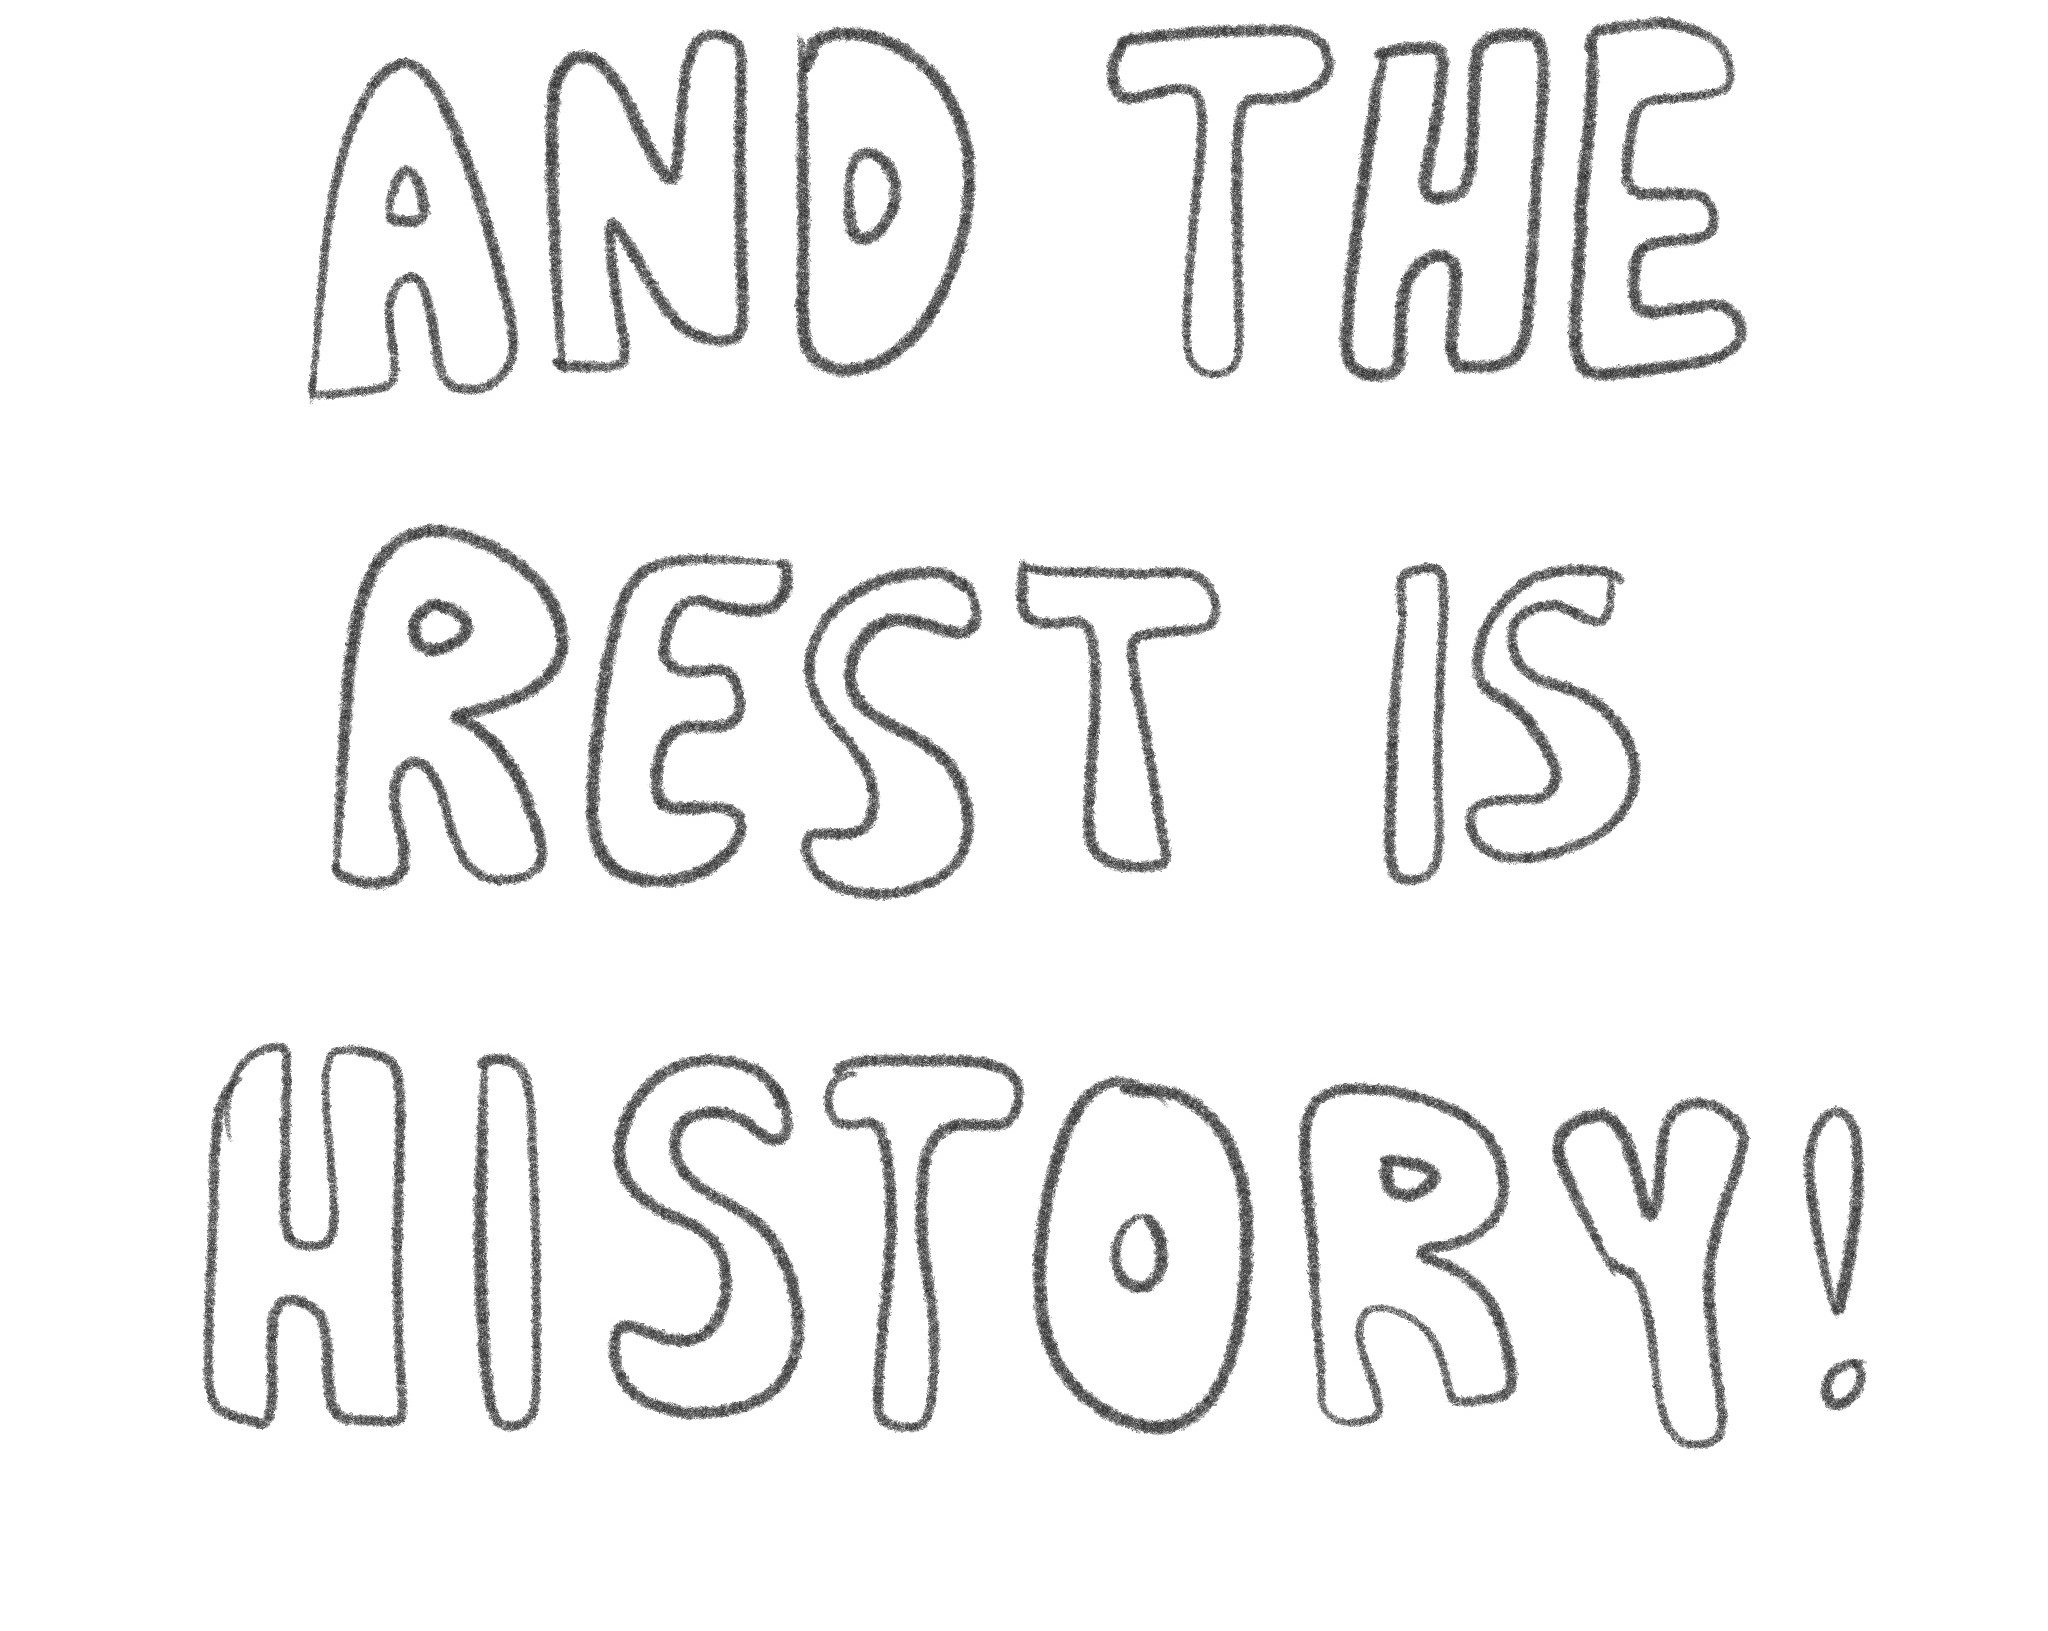 AND THE
REST IS
HISTORY!